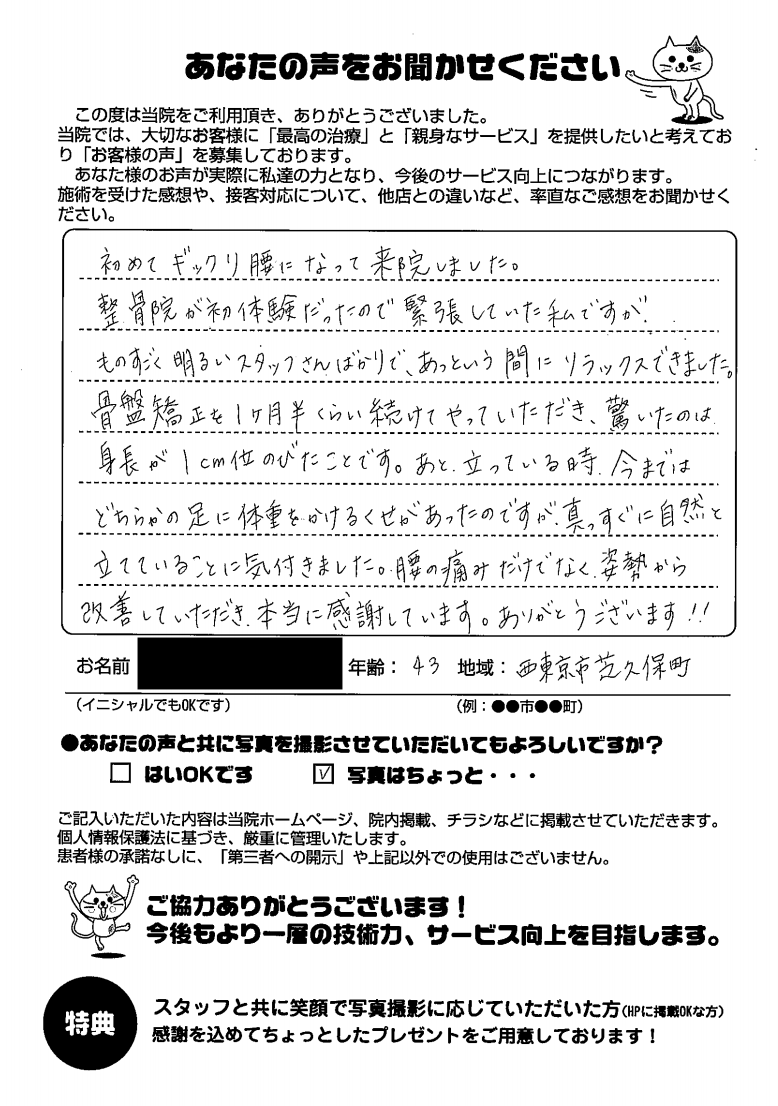 あなたの声をお聞かせください
この度は当院をご利用頂き、ありがとうございました。
当院では、大切なお客様に「最高の治療」と「親身なサービス」を提供したいと考えてお
り「お客様の声」を募集しております。
あなた様のお声が実際に私達の力となり、今後のサービス向上につながります。
施術を受けた感想や、接客対応について、他店との違いなど、率直なご感想をお聞かせく
ださい。
初めてギックリ腰になって来院しました。
整骨院が初体験だったので緊張していた私ですが、
ものすごく明るいスタッフさんばかりで、あっという間にリラックスできました。
骨盤矯正を1ヶ月半くらい続けてやっていただき、驚いたのは
身長が1cm位のびたことです。あと、立っている時、今までは
どちらかの足に体重をかけるくせがあったのですが、真っすぐに自然と
立てていることに気付きました。腰の痛みだけでなく、姿勢から
改善していただき、本当に感謝しています。ありがとうございます!!
お名前 年齢：43 地域：西東京市芝久保町
（イニシャルでもOKです） （例：●●市●●町）
●あなたの声と共に写真を撮影させていただいてもよろしいですか？
□ はいOKです ☑ 写真はちょっと・・・
ご記入いただいた内容は当院ホームページ、院内掲載、チラシなどに掲載させていただきます。
個人情報保護法に基づき、厳重に管理いたします。
患者様の承諾なしに、「第三者への開示」や上記以外での使用はございません。
ご協力ありがとうございます！
今後もより一層の技術力、サービス向上を目指します。
特典
スタッフと共に笑顔で写真撮影に応じていただいた方（HPに掲載OKな方）
感謝を込めてちょっとしたプレゼントをご用意しております！